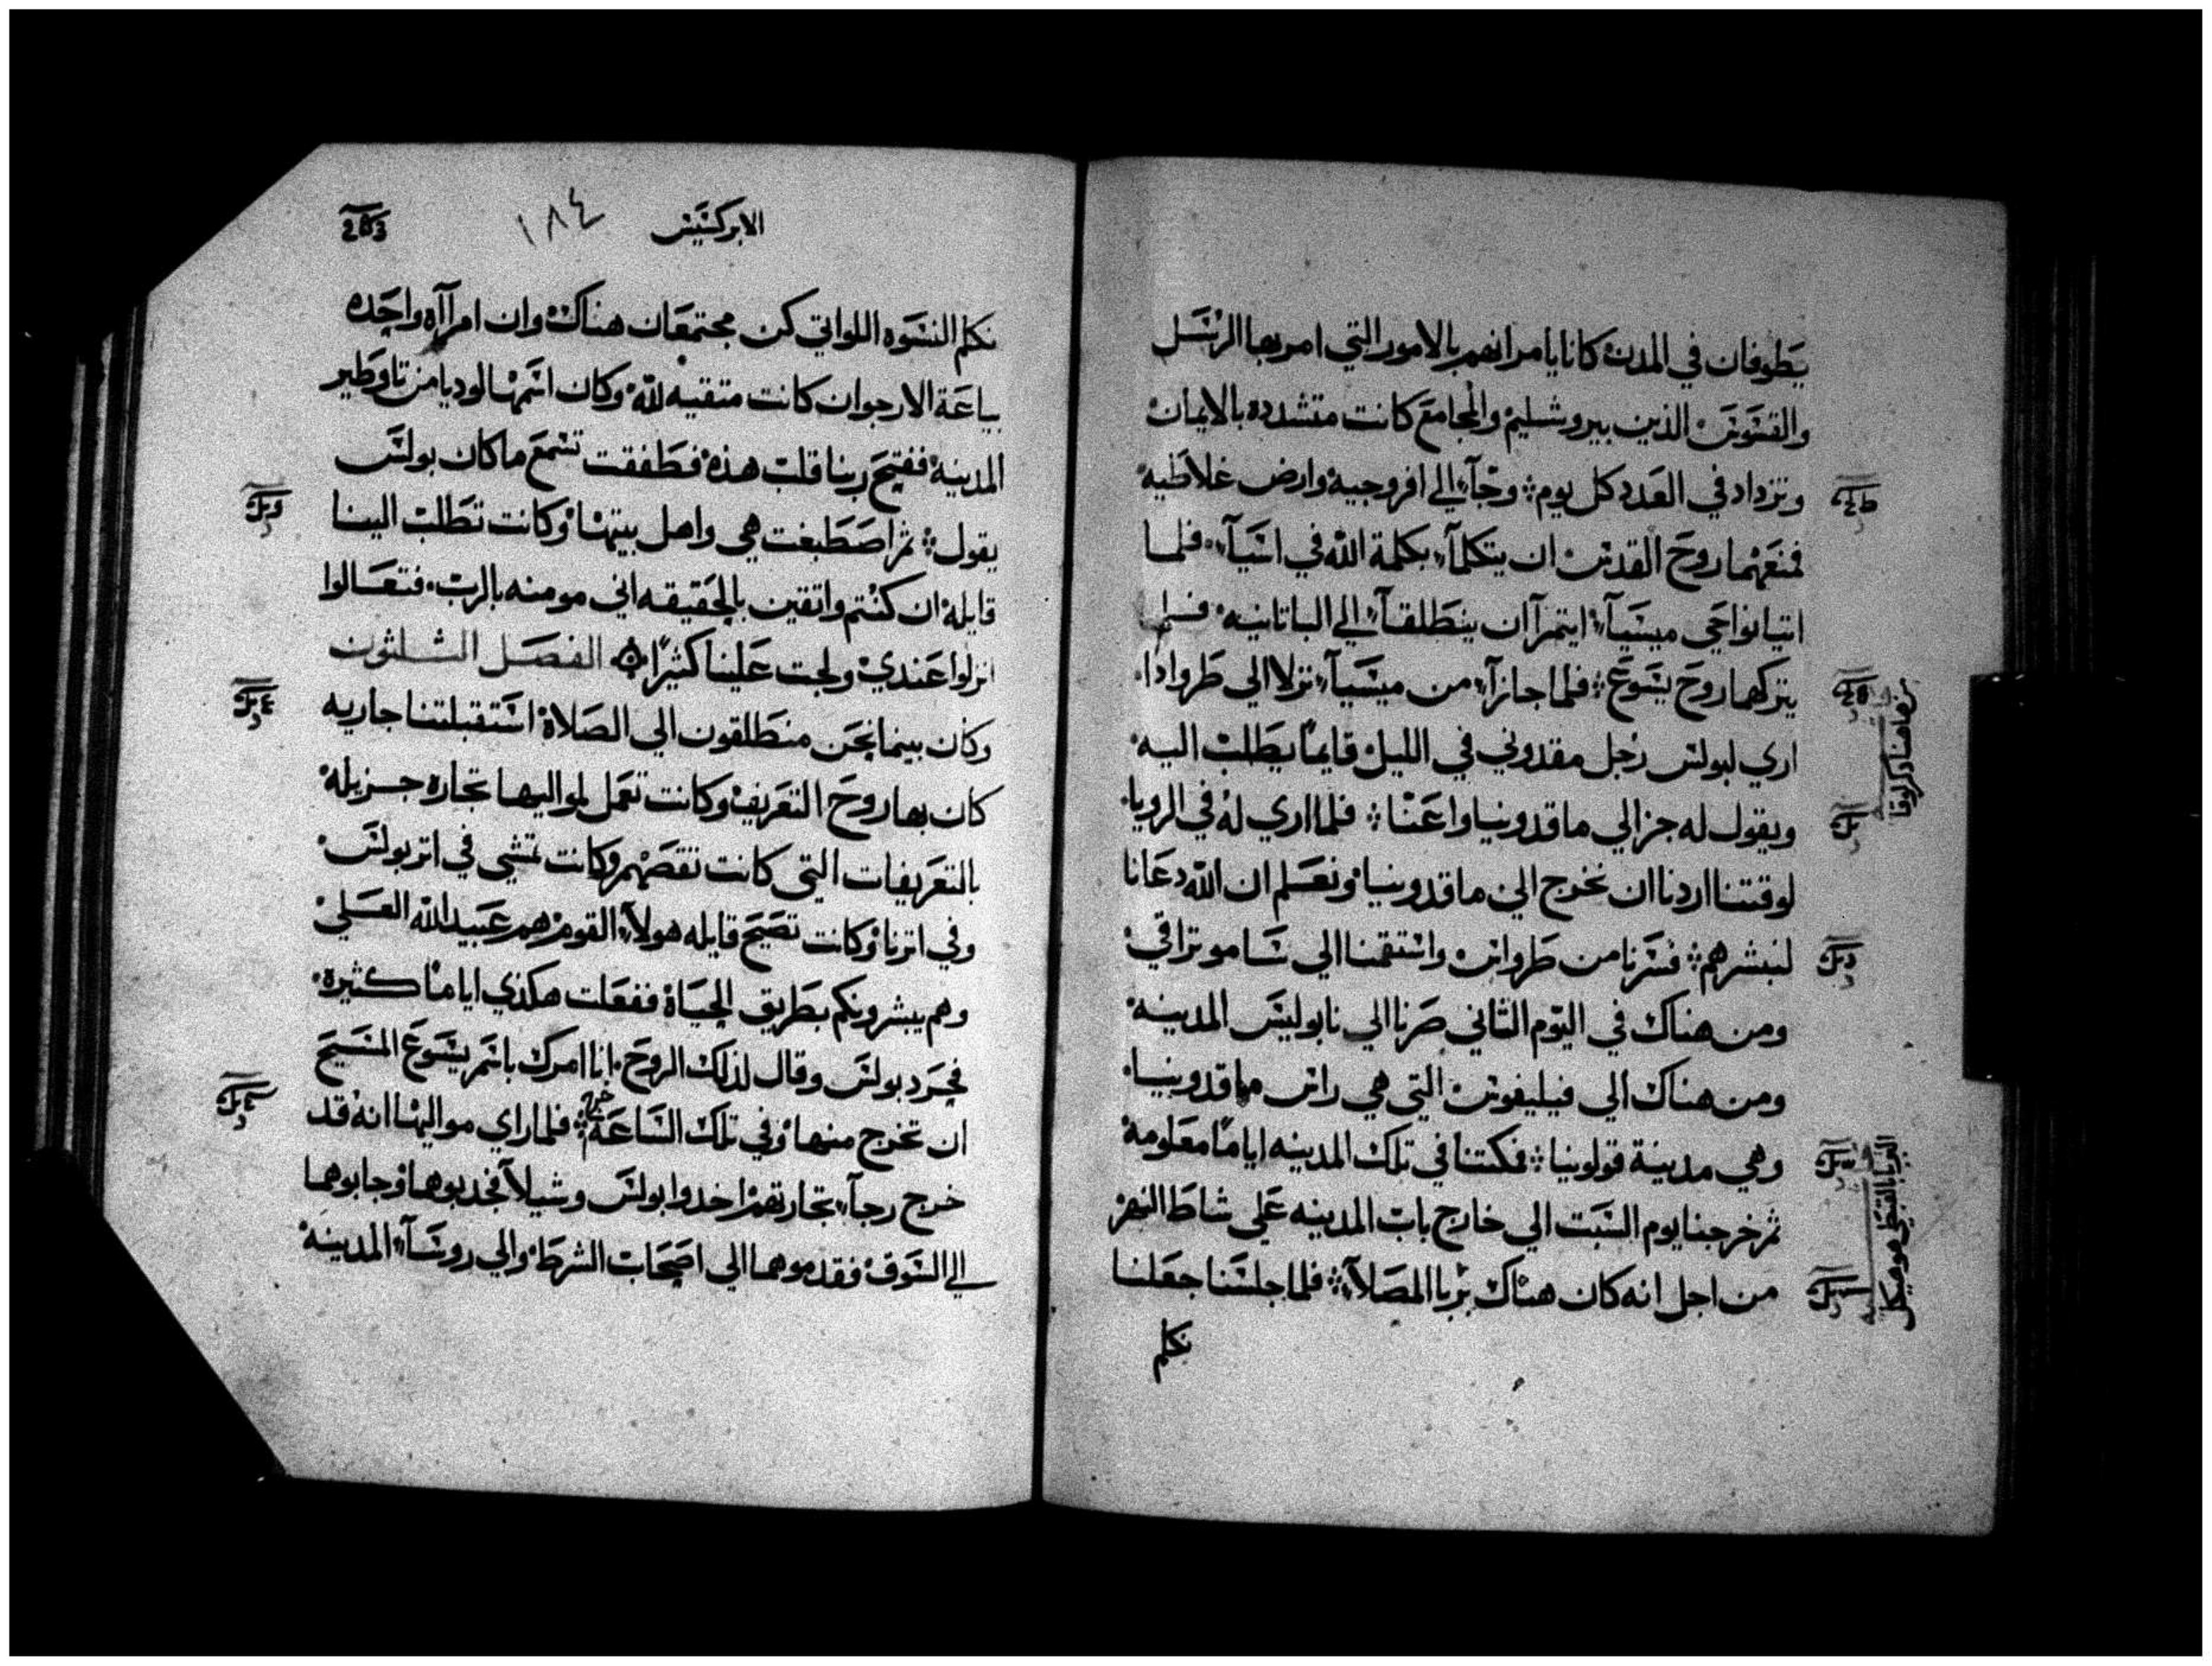 يطوفان في المدن كانا يامرانهم بالامور التي امر بها الرسل
والقسوس الذين بيروشليم والمجامع كانت متشدده بالايمان
وتزداد في العدد كل يوم وجآا الي افروجيه وارض غلاطيه
فمنعهما روح القدس ان يتكلمآ بكلمة الله في اسيآ فلما
اتيا نواحي ميسيآ ايتمرآ ان ينطلقآ الي الباتانيه فلم
يتركهما روح يسوع فلما جازآ من ميسيآ نزلا الي طروادا
اري لبولس رجل مقدوني في الليل قايمًا يطلب اليه
ويقول له جز الي ماقدونيا واعنا فلما اري له في الرويا
لوقتنا اردنا ان نخرج الي ماقدونيا ونعلم ان الله دعانا
لنبشرهم فسرنا من طرواس واستقمنا الي ساموتراقي
ومن هناك في اليوم الثاني صرنا الي نابوليس المدينه
ومن هناك الي فيليفوس التي هي راس ماقدونيا
وهي مدينة قولونيا فمكتنا في تلك المدينه ايامًا معلومة
ثم خرجنا يوم السبت الي خارج باب المدينه علي شاط النهر
من اجل انه كان هناك بربا المصلاآ فلما جلسنا جعلنا
نكلم
من هاهنا ذكر لوقا
البربا بالقبطي هو هيكل
الابركسيس ١٨٤
نكلم النسوه اللواتي كن مجتمعان هناك وان امرآاه واحده
بياعة الارجوان كانت متقيه لله وكان اسمها لوديا من تاوطير
المدينه ففتح ربنا قلب هذه فطفقت تسمع ما كان بولس
يقول ثم اصطبغت هي واهل بيتها وكانت تطلب الينا
قايله ان كنتم واتقين بالحقيقه اني مومنه بالرب فتعالوا
انزلوا عندي ولجت علينا كثيرًا الفصل الثلثون
وكان بينما نحن منطلقون الي الصلاة استقبلتنا جاريه
كان بها روح التعريف وكانت تعمل لمواليها تجاره جزيله
بالتعريفات التي كانت تقصهم وكانت تمشي في اتر بولس
وفي اترنا وكانت تصيح قايله هولاآ القوم هم عبيد الله العلي
وهم يبشرونكم بطريق الحياة ففعلت هكذي ايامًا كثيره
فحرد بولس وقال لذلك الروح انا امرك باسم يسوع المسيح
ان تخرج منها وفي تلك الساعة خرج فلما راي مواليها انه قد
خرج رجآا تجارتهم اخدوا بولس وشيلآ فجدبوهما وجابوهما
الي السوق فقدموهما الي اصحاب الشرط والي روسآا المدينه